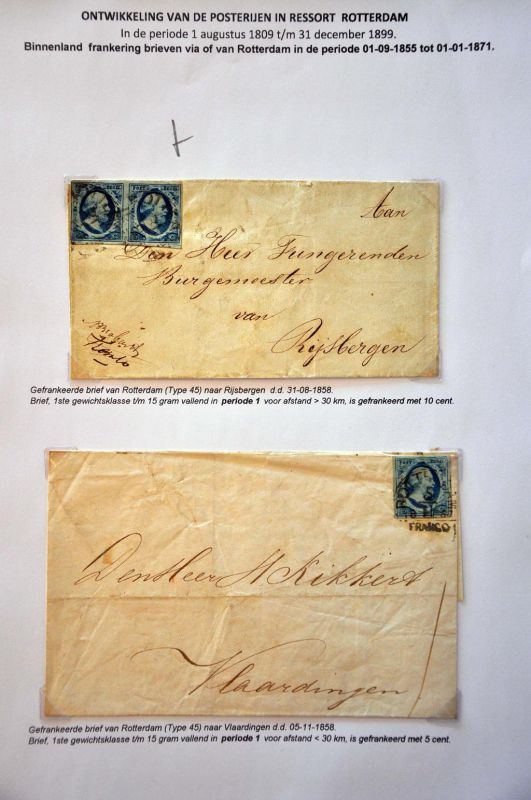 ONTWIKKELING VAN DE POSTERIJEN IN RESSORT ROTTERDAM
In de periode 1 augustus 1809 t/m 31 december 1899.
Binnenland frankering brieven via of van Rotterdam in de periode 01-09-1855 tot 01-01-1871.
Aan
Den Heer Fungerenden
Burgemeester
van
Rijsbergen
franko
Gefrankeerde brief van Rotterdam (Type 45) naar Rijsbergen d.d. 31-08-1858.
Brief, 1ste gewichtsklasse t/m 15 gram vallend in periode 1 voor afstand > 30 km, is gefrankeerd met 10 cent.
FRANCO
Den Heer H Kikkert
Vlaardingen
Gefrankeerde brief van Rotterdam (Type 45) naar Vlaardingen d.d. 05-11-1858.
Brief, 1ste gewichtsklasse t/m 15 gram vallend in periode 1 voor afstand < 30 km, is gefrankeerd met 5 cent.